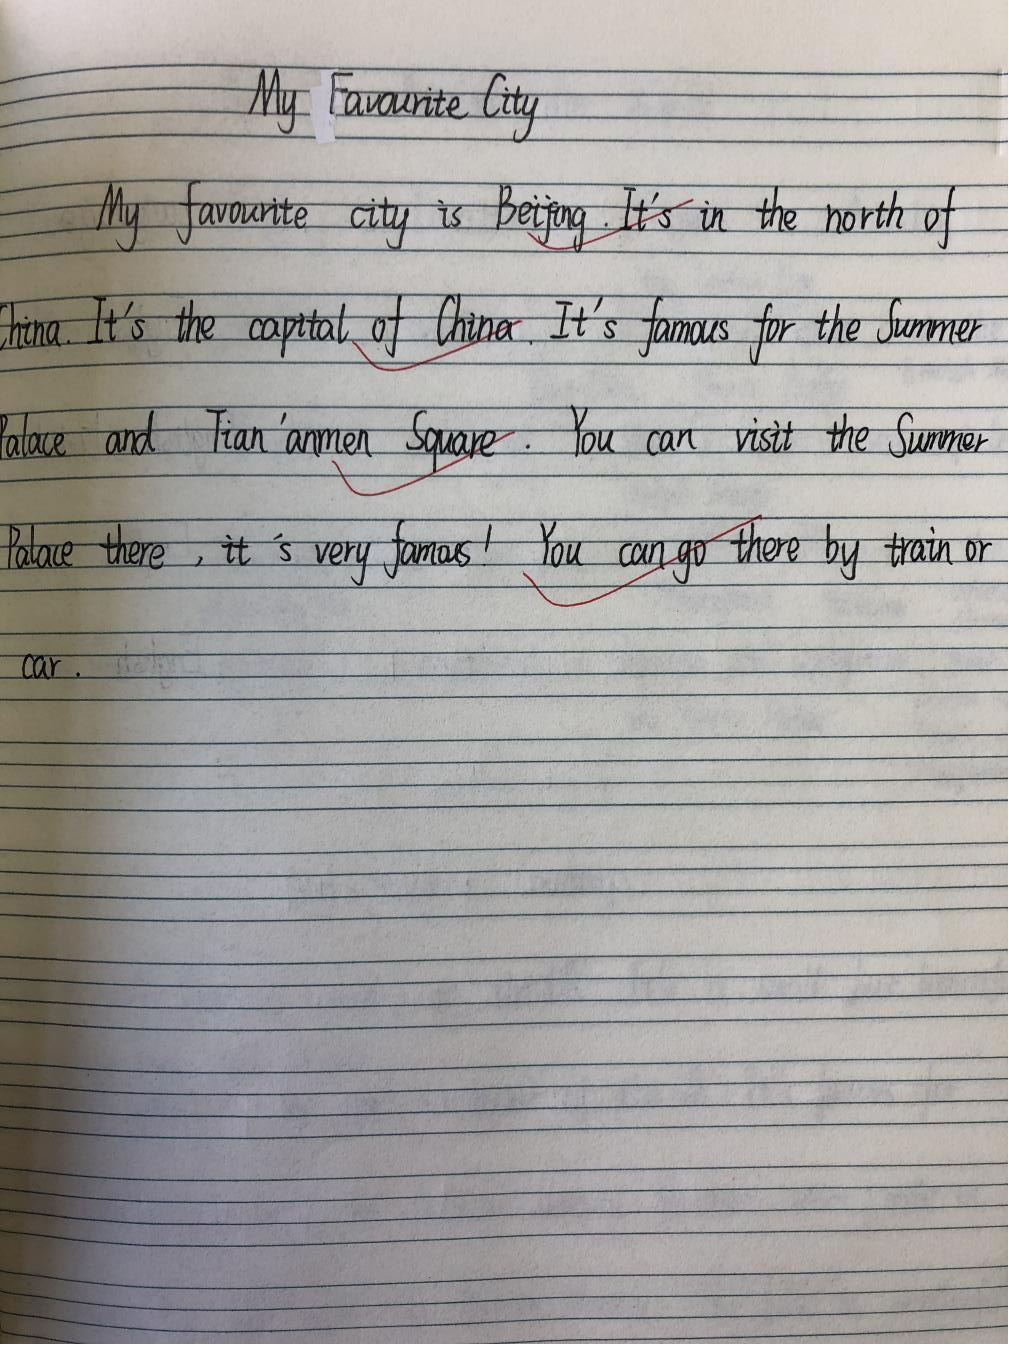 My Favourite City
My favourite city is Beijing. It's in the north of
China. It's the capital of China. It's famous for the Summer
Palace and Tian'anmen Square. You can visit the Summer
Palace there, it's very famous! You can go there by train or
car.